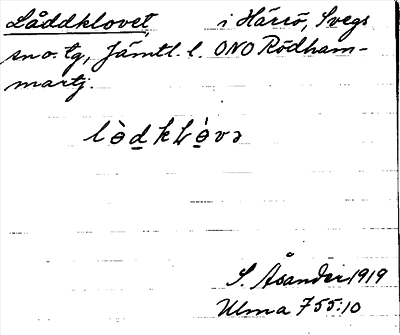 Låddklovet, i Härrö, Svegs
sn o. tg, Jämtl. l. ONO Rödham-
martj.
lò̱d̲kLò̱və
S. Åsander 1919
Ulma 755:10